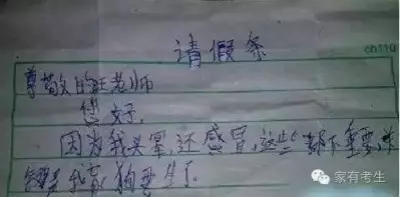 请假条
ch110
尊敬的汪老师
您好,
因为我头晕,还感冒,这些都不重要,
我家狗要生了.
家有考生